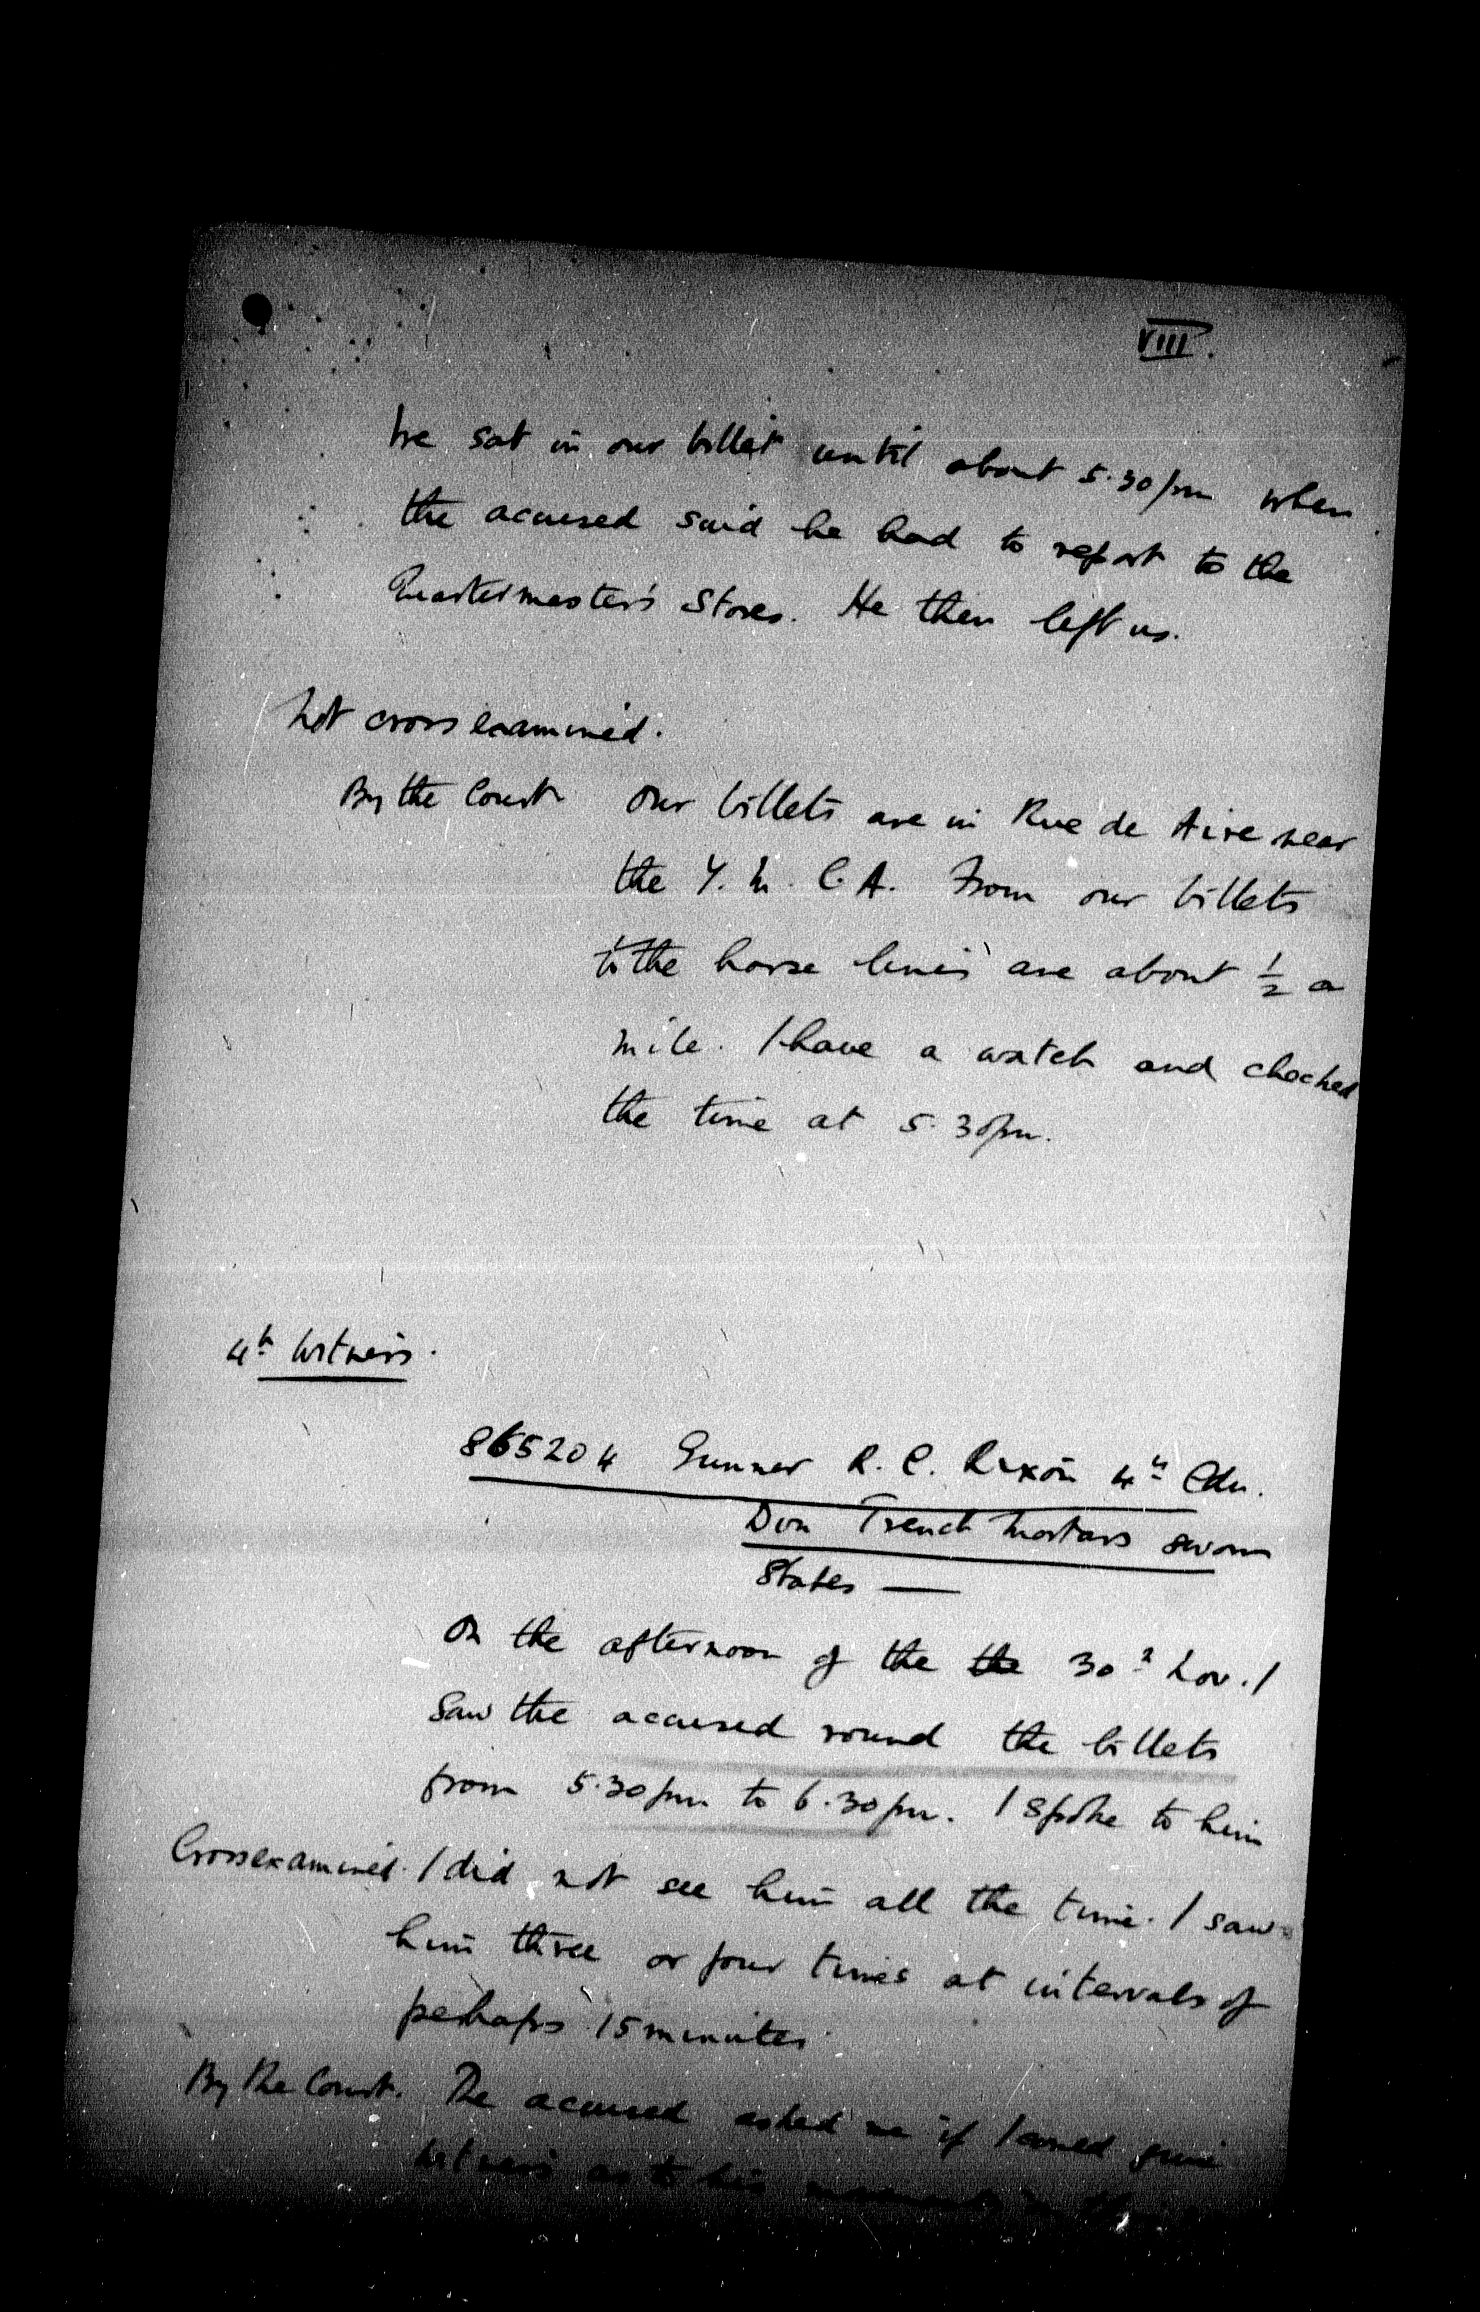 VIII.
We sat in our billet until about 5.30pm when
the accused said he had to report to the
Quartermaster's Stores. He then left us.
Not cross examined.
By the Court Our billets are in Rue de Aire near
the Y. M. C. A. From our billets
to the horse lines are about ½ a
mile. I have a watch and checked
the time at 5.30pm.
4th Witness.
865204 Gunner R. C. Rixon 4th Cdn.
Divn Trench Mortars sworn
States —
On the afternoon of the the 30th Nov. I
saw the accused round the billets
from 5.30pm to 6.30pm. I spoke to him
Crossexamined. I did not see him all the time. I saw
him three or four times at intervals of
perhaps 15 minutes.
By the Court. The accused asked me if I could give
witness as to his movements